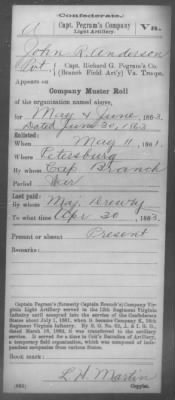 Confederate.
A | Capt. Pegram's Company | Va.
Light Artillery.
John R. Anderson
Pvt, Capt. Richard G. Pegram's Co.
(Branch Field Art'y) Va. Troops.
Appears on
Company Muster Roll
of the organization named above,
for May & June, 1863.
Dated June 30, 1863
Enlisted:
When May 11, 1861.
Where Petersburg
By whom Cap Branch
Period War
Last paid:
By whom Maj. Drewry
To what time Apr 30, 1863.
Present or absent Present
Remarks:
Captain Pegram's (formerly Captain Branch's) Company Virginia Light Artillery served in the 12th Regiment Virginia
Infantry until accepted into the service of the Confederate
States about July 1, 1861, when it became Company K, 16th
Regiment Virginia Infantry. By S. O. No.
dated March 18, 1862, it was transferred to the artillery
service. It served for a time in Coit's Battalion of Artillery,
a temporary field organization, which was composed of independent companies from various States.
Book mark:
L H Martin
Copyist.